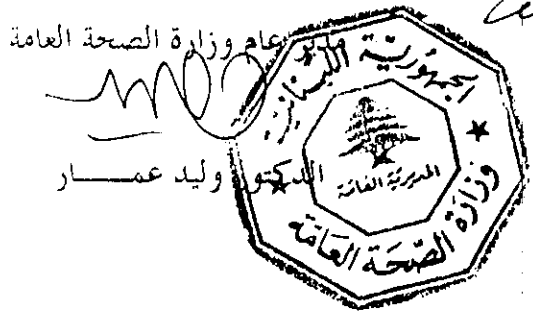 مدير عام وزارة الصحة العامة
الدكتور وليد عمـــــار
الجمهورية اللبنانية
المديرية العامة
وزارة الصحة العامة